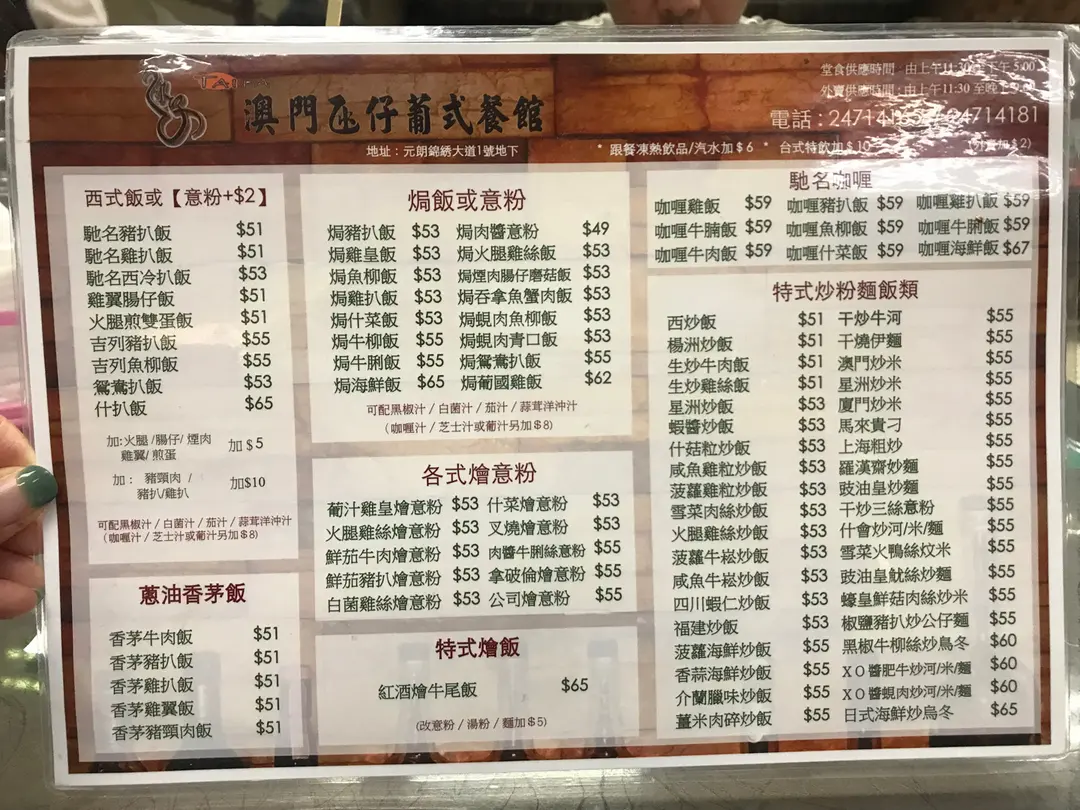 TAIPA
澳門氹仔葡式餐館
堂食供應時間：由上午11:30 至下午 5:00
外賣供應時間：由上午11:30 至晚上
電話 : 24714181
地址：元朗錦綉大道1號地下
* 跟餐凍熱飲品/汽水加 $ 6 * 台式特飲加 $ 10
西式飯或【意粉+$2】
馳名豬扒飯 $51
馳名雞扒飯 $51
馳名西冷扒飯 $53
雞翼腸仔飯 $51
火腿煎雙蛋飯 $51
吉列豬扒飯 $55
吉列魚柳飯 $55
鴛鴦扒飯 $53
什扒飯 $65
加:火腿 /腸仔/ 煙肉
雞翼/ 煎蛋 加 $ 5
加： 豬頸肉 /
豬扒/雞扒 加$10
可配黑椒汁 / 白菌汁 / 茄汁 / 蒜茸洋沖汁
(咖喱汁 / 芝士汁或葡汁另加$8)
蔥油香茅飯
香茅牛肉飯 $51
香茅豬扒飯 $51
香茅雞扒飯 $51
香茅雞翼飯 $51
香茅豬頸肉飯 $51
焗飯或意粉
焗豬扒飯 $53 焗肉醬意粉 $49
焗雞皇飯 $53 焗火腿雞絲飯 $53
焗魚柳飯 $53 焗煙肉腸仔磨菇飯 $53
焗雞扒飯 $53 焗吞拿魚蟹肉飯 $53
焗什菜飯 $53 焗蜆肉魚柳飯 $53
焗牛柳飯 $55 焗蜆肉青口飯 $53
焗牛脷飯 $55 焗鴛鴦扒飯 $55
焗海鮮飯 $65 焗葡國雞飯 $62
可配黑椒汁 / 白菌汁 / 茄汁 / 蒜茸洋沖汁
(咖喱汁 / 芝士汁或葡汁另加$8)
各式燴意粉
葡汁雞皇燴意粉 $53 什菜燴意粉 $53
火腿雞絲燴意粉 $53 叉燒燴意粉 $53
鮮茄牛肉燴意粉 $53 肉醬牛脷絲意粉 $55
鮮茄豬扒燴意粉 $53 拿破倫燴意粉 $55
白菌雞絲燴意粉 $53 公司燴意粉 $55
特式燴飯
紅酒燴牛尾飯 $65
(改意粉 / 湯粉 / 麵加$5)
馳名咖喱
咖喱雞飯 $59 咖喱豬扒飯 $59 咖喱雞扒飯 $59
咖喱牛腩飯 $59 咖喱魚柳飯 $59 咖喱牛脷飯 $59
咖喱牛肉飯 $59 咖喱什菜飯 $59 咖喱海鮮飯 $67
特式炒粉麵飯類
西炒飯 $51 干炒牛河 $55
楊洲炒飯 $51 干燒伊麵 $55
生炒牛肉飯 $51 澳門炒米 $55
生炒雞絲飯 $51 星洲炒米 $55
星洲炒飯 $53 廈門炒米 $55
蝦醬炒飯 $53 馬來貴刁 $55
什菇粒炒飯 $53 上海粗炒 $55
咸魚雞粒炒飯 $53 羅漢齋炒麵 $55
菠蘿雞粒炒飯 $53 豉油皇炒麵 $55
雪菜肉絲炒飯 $53 干炒三絲意粉 $55
火腿雞絲炒飯 $53 什會炒河/米/麵 $55
菠蘿牛崧炒飯 $53 雪菜火鴨絲炆米 $55
咸魚牛崧炒飯 $53 豉油皇魷絲炒麵 $55
四川蝦仁炒飯 $53 蠔皇鮮菇肉絲炒米 $55
福建炒飯 $53 椒鹽豬扒炒公仔麵 $55
菠蘿海鮮炒飯 $55 黑椒牛柳絲炒烏冬 $60
香蒜海鮮炒飯 $55 XO醬肥牛炒河/米/麵 $60
介蘭臘味炒飯 $55 XO醬蜆肉炒河/米/麵 $60
薑米肉碎炒飯 $55 日式海鮮炒烏冬 $65